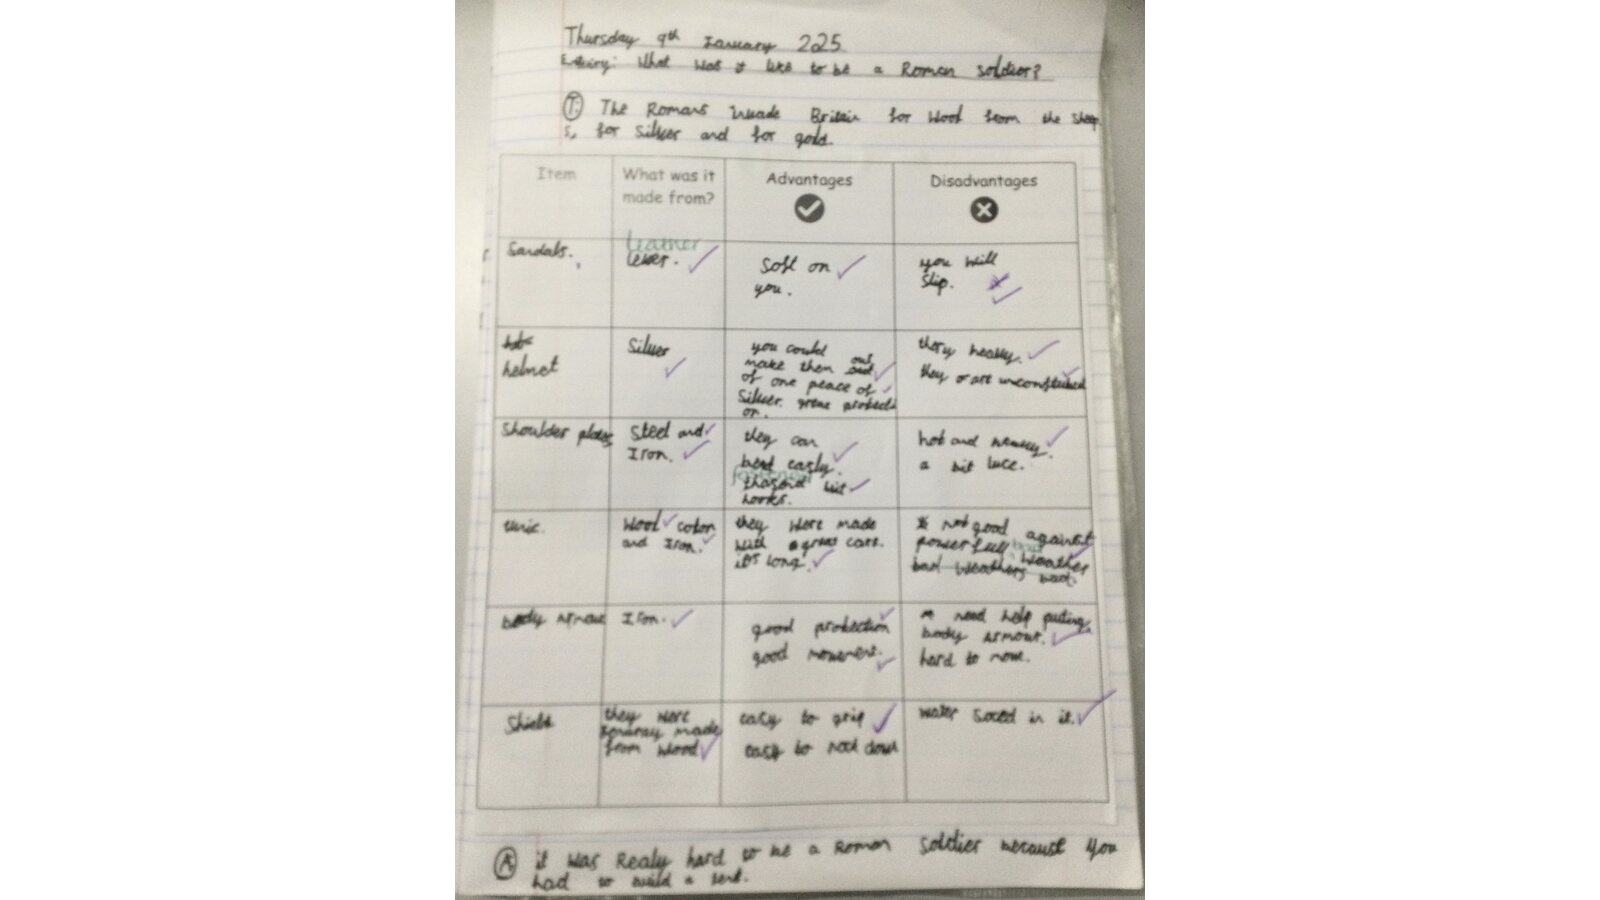 Thursday 9th January 2025
Enquiry: What was it like to be a Roman soldier?
T: The Romans Invade Britain for Wool from the sheep
s, for Silver and for gold.
Item
What was it
made from?
Advantages
Disadvantages
Sandals.
Leather
lever.
Soft on
you.
you will
Slip.
helmet
Silver
you could
make them out
of one peace of
Silver. great protecti
on.
they heavy.
they are
Shoulder plates
Steel and
Iron.
they can
bend easly.
fastened
hooks.
hot and
a bit
tunic.
Wool coton
and Iron.
they were made
with a great care.
it's long.
not good against
powerfull bad weather
bad
body armour
Iron.
good protection
good movement.
need help puting
body armour.
hard to move.
Shield
they were
made
from wood
easy to grip
easy to nock down
water soced in it.
A: it was Realy hard to be a Roman Soldier because you
had to build a tent.